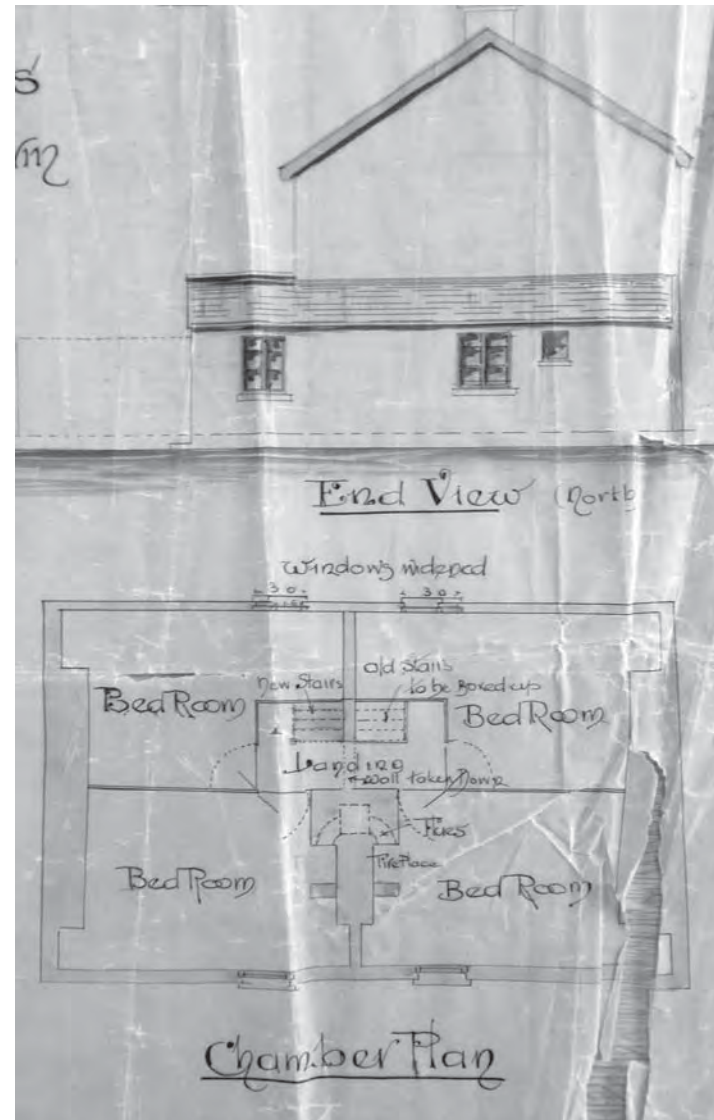 s
m
End View (North
windows widened
3 0
3 0
New Stairs
old Stairs
to be Boxed up
Bed Room
Bed Room
Landing
Wall taken Down
Flues
Fire Place
Bed Room
Bed Room
Chamber Plan